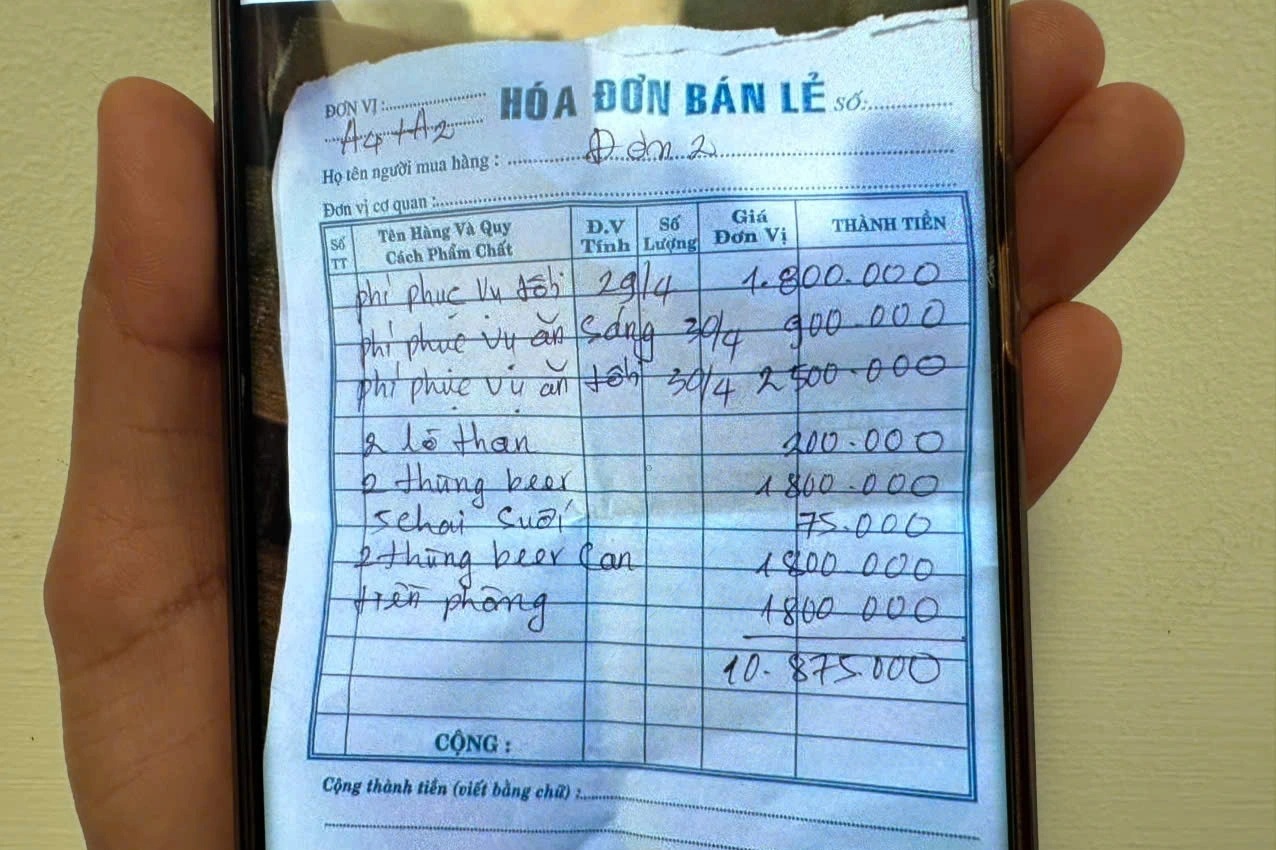 HÓA ĐƠN BÁN LẺ
ĐƠN VỊ :
SỐ:
A4+A2
Họ tên người mua hàng : Đơn 2
Đơn vị cơ quan :
Số TT
Tên Hàng Và Quy Cách Phẩm Chất
Đ.V Tính
Số Lượng
Giá Đơn Vị
THÀNH TIỀN
phí phục vụ tối 29/4 1.800.000
phí phục vụ ăn sáng 30/4 900.000
phí phục vụ ăn tối 30/4 2500.000
2 lò than 200.000
2 thùng beer 1800.000
5 chai suối 75.000
2 thùng beer can 1800 000
tiền phòng 1800 000
10.875.000
CỘNG :
Cộng thành tiền (viết bằng chữ) :